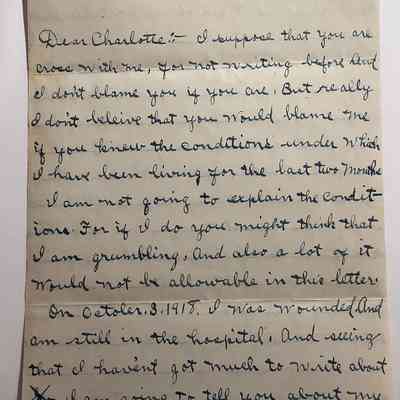 Dear Charlotte:- I suppose that you are
cross with me, for not writing before And
I don't blame you if you are. But really
I don't beleive that you would blame me
if you knew the conditions under which
I have been living for the last two months
I am not going to explain the condit-
ions. For if I do you might think that
I am grumbling. And also a lot of it
would not be allowable in this letter.
On Octoler. 3. 1918. I was wounded. And
am still in the hospital. And seeing
that I haven't got much to write about
I am going to tell you about my